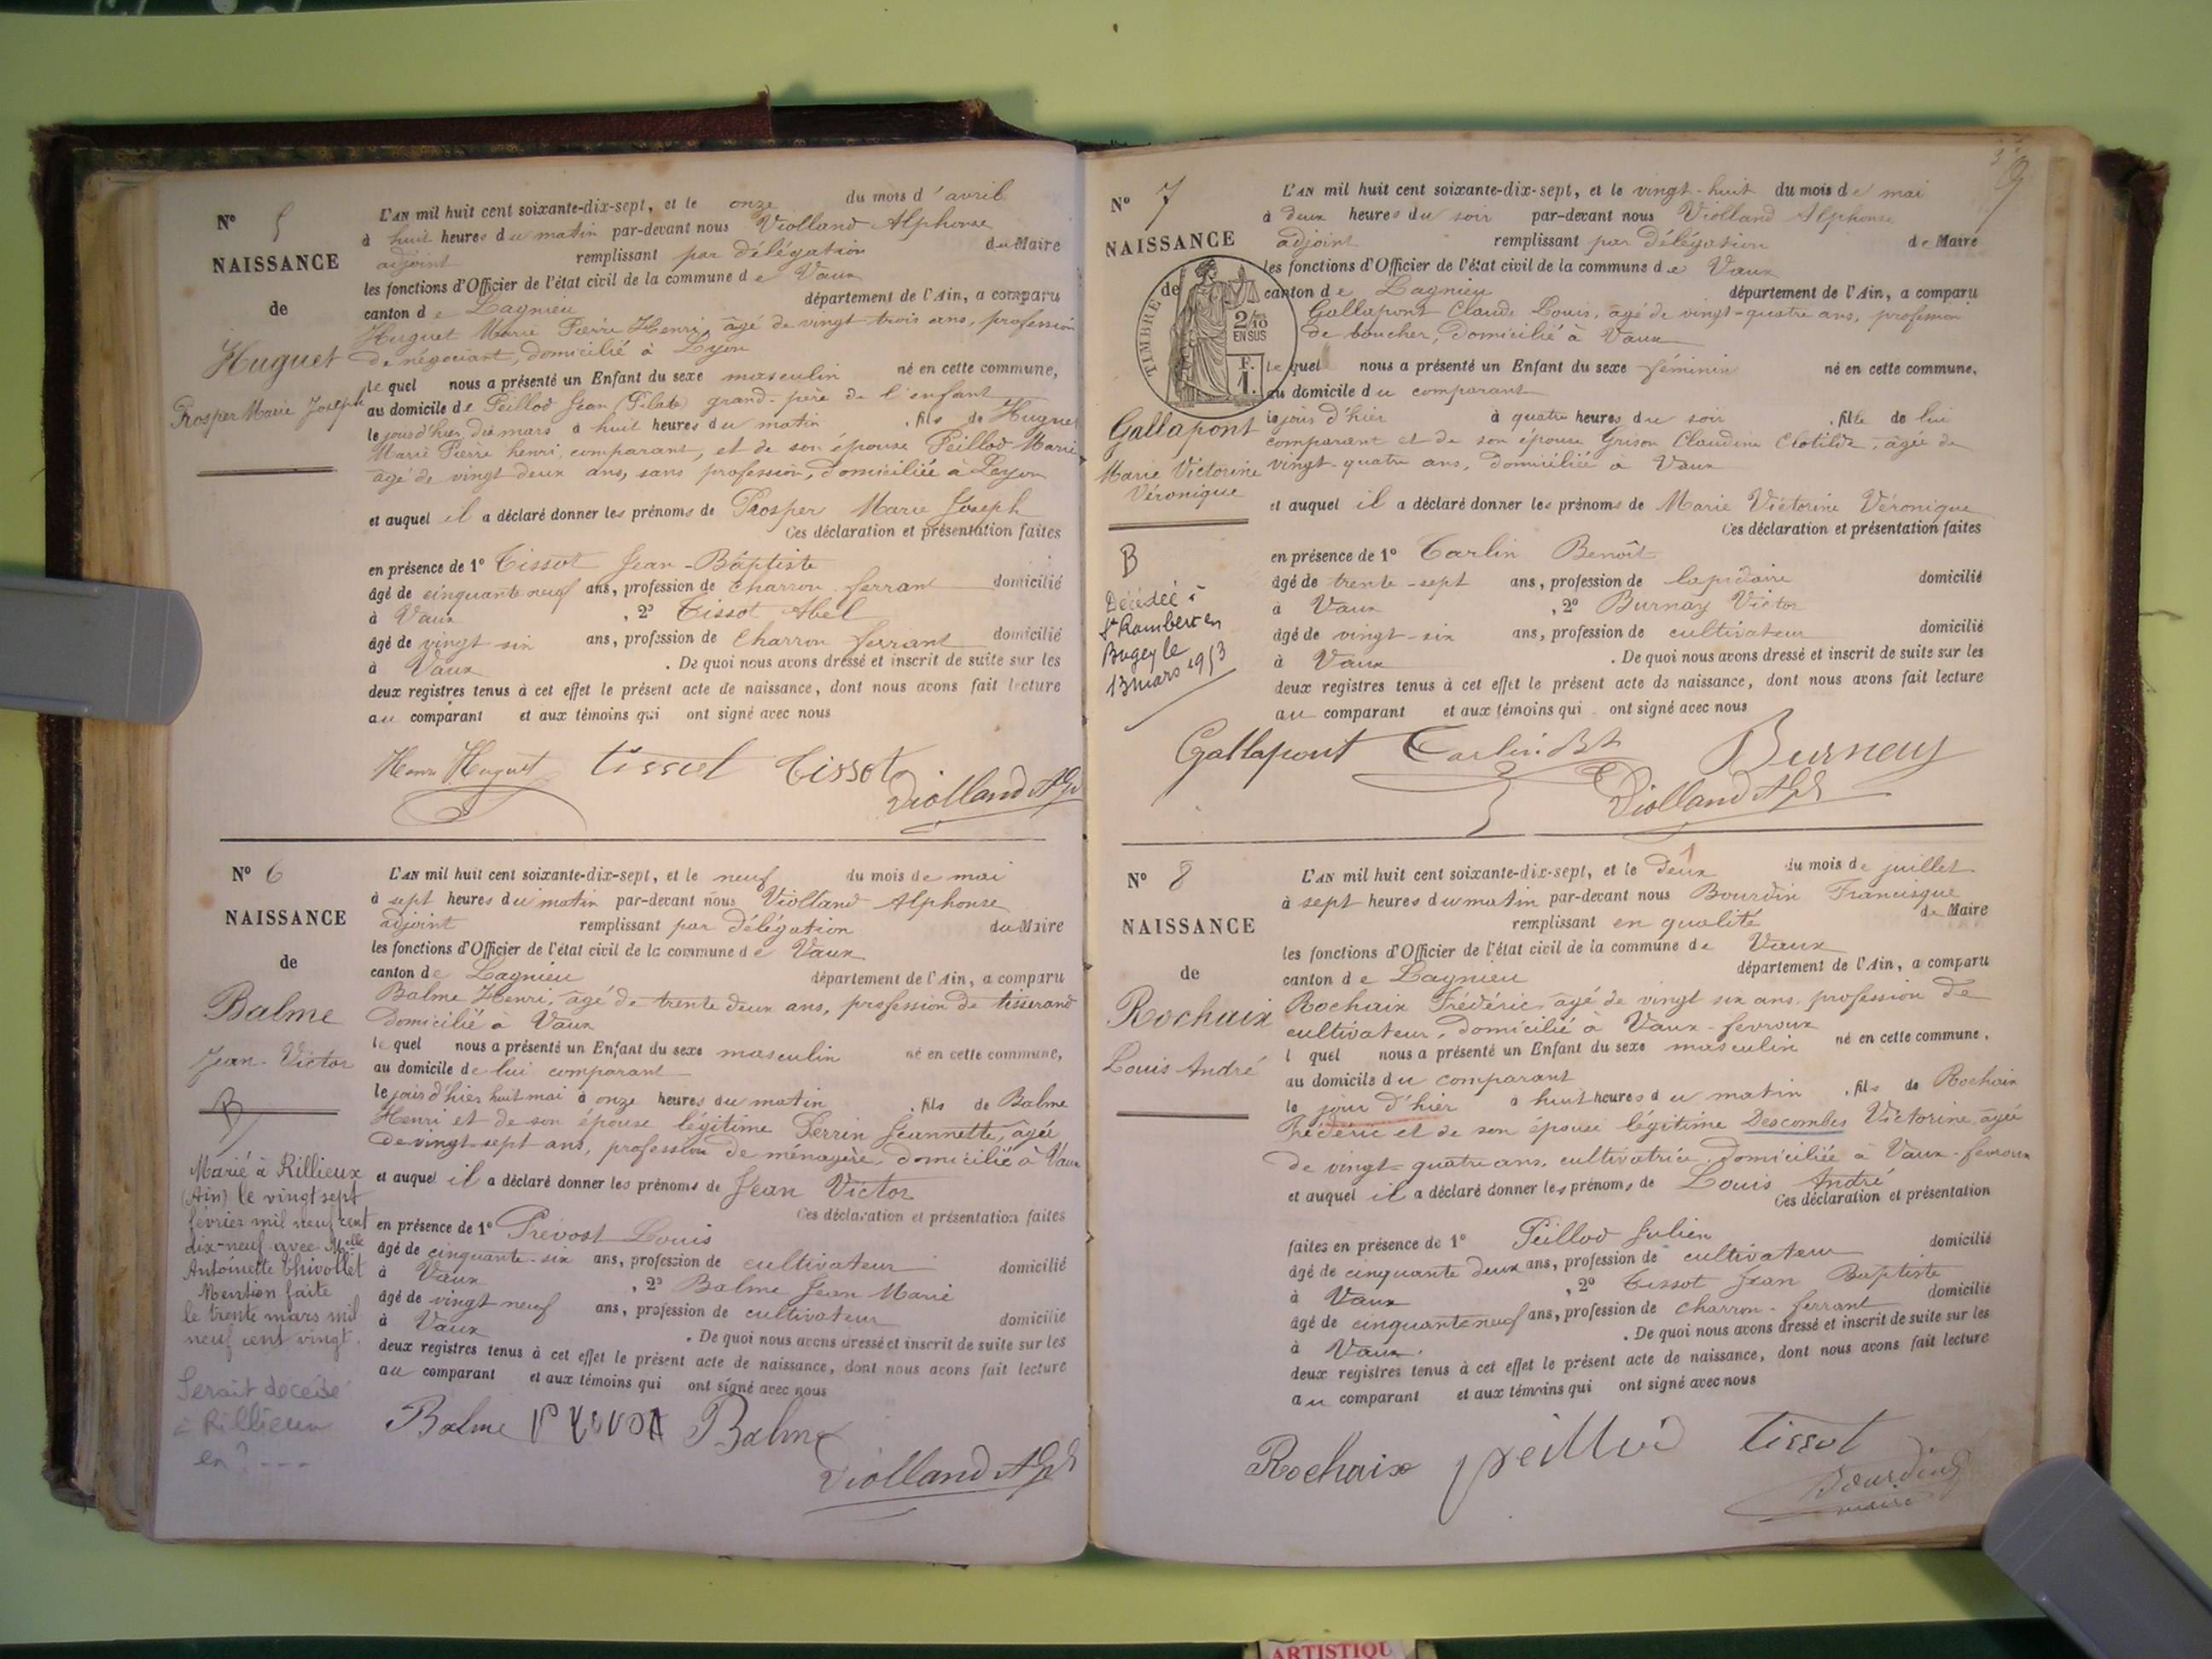 N° 5
NAISSANCE
de
Huguet
Prosper Marie Joseph
L'AN mil huit cent soixante-dix-sept, et le onze du mois d'avril
à huit heures du matin par-devant nous Violland Alphonse
adjoint remplissant par délégation du Maire
les fonctions d'Officier de l'état civil de la commune de Vaux
canton de Lagnieu département de l'Ain, a comparu
Huguet Marie Pierre Henri, âgé de vingt trois ans, profession
de négociant, domicilié à Lyon
le quel nous a présenté un Enfant du sexe masculin né en cette commune,
au domicile de Peillod Jean (Pilate) grand-père de l'enfant
le jour d'hier, dix mars à huit heures du matin , fils de Huguet
Marie Pierre henri, comparant, et de son épouse Peillod Marie
âgé de vingt deux ans, sans profession, domiciliée a Leyon
et auquel il a déclaré donner les prénoms de Prosper Marie Joseph
Ces déclaration et présentation faites
en présence de 1° Tissot Jean-Baptiste
âgé de cinquante neuf ans, profession de charron ferrant domicilié
à Vaux , 2° Tissot Abel
âgé de vingt six ans, profession de Charron ferrant domicilié
à Vaux . De quoi nous avons dressé et inscrit de suite sur les
deux registres tenus à cet effet le présent acte de naissance, dont nous avons fait lecture
au comparant et aux témoins qui ont signé avec nous
Henri Huguet tissot Tissot
Violland Alph
N° 6
NAISSANCE
de
Balme
Jean-Victor
B
Marié à Rillieux
(Ain) le vingt sept
février mil neuf cent
dix-neuf avec Melle
Antoinette Chivollet
Mention faite
le trente mars mil
neuf cent vingt.
Serait décédé
à Rillieux
en ? ---
L'AN mil huit cent soixante-dix-sept, et le neuf du mois de mai
à sept heures du matin par-devant nous Violland Alphonse
adjoint remplissant par délégation du Maire
les fonctions d'Officier de l'état civil de la commune de Vaux
canton de Lagnieu département de l'Ain, a comparu
Balme Henri, âgé de trente deux ans, profession de tisserand
domicilié à Vaux
le quel nous a présenté un Enfant du sexe masculin né en cette commune,
au domicile de lui comparant
le jour d'hier huit mai à onze heures du matin , fils de Balme
Henri et de son épouse légitime Perrin Jeannette, âgée
de vingt-sept ans, profession de ménagère, domicilié à Vaux
et auquel il a déclaré donner les prénoms de Jean Victor
Ces déclaration et présentation faites
en présence de 1° Prévost Louis
âgé de cinquante-six ans, profession de cultivateur domicilié
à Vaux , 2° Balme Jean Marie
âgé de vingt neuf ans, profession de cultivateur domicilié
à Vaux . De quoi nous avons dressé et inscrit de suite sur les
deux registres tenus à cet effet le présent acte de naissance, dont nous avons fait lecture
au comparant et aux témoins qui ont signé avec nous
Balme Balme
Violland Alph
9
N° 7
NAISSANCE
de
TIMBRE
2/10
EN SUS
F.
1.
Gallapont
Marie Victorine
Véronique
B
Décédée à
St Rambert en
Bugey le
13 mars 1953
L'AN mil huit cent soixante-dix-sept, et le vingt-huit du mois de mai
à deux heures du soir par-devant nous Violland Alphonse
adjoint remplissant par délégation de Maire
les fonctions d'Officier de l'état civil de la commune de Vaux
canton de Lagnieu département de l'Ain, a comparu
Gallapont Claude Louis, âgé de vingt-quatre ans, profession
de boucher, domicilié à Vaux
le quel nous a présenté un Enfant du sexe féminin né en cette commune,
au domicile du comparant
le jour d'hier à quatre heures du soir , fille de lui
comparant et de son épouse Grison Claudine Clotilde, âgée de
vingt-quatre ans, domiciliée à Vaux
et auquel il a déclaré donner les prénoms de Marie Victorine Véronique
Ces déclaration et présentation faites
en présence de 1° Carlin Benoît
âgé de trente-sept ans, profession de lapidaire domicilié
à Vaux , 2° Burnay Victor
âgé de vingt-six ans, profession de cultivateur domicilié
à Vaux . De quoi nous avons dressé et inscrit de suite sur les
deux registres tenus à cet effet le présent acte de naissance, dont nous avons fait lecture
au comparant et aux témoins qui ont signé avec nous
Gallapont Carlin Bt Burnay
Violland Alph
N° 8
NAISSANCE
de
Rochaix
Louis André
L'AN mil huit cent soixante-dix-sept, et le deux du mois de juillet
à sept heures du matin par-devant nous Bourdin Francisque
remplissant en qualité de Maire
les fonctions d'Officier de l'état civil de la commune de Vaux
canton de Lagnieu département de l'Ain, a comparu
Rochaix Frédéric, âgé de vingt six ans, profession de
cultivateur, domicilié à Vaux-fevroux
l quel nous a présenté un Enfant du sexe masculin né en cette commune,
au domicile du comparant
le jour d'hier à huit heures du matin , fils de Rochaix
Frédéric et de son épouse légitime Descombes Victorine, âgée
de vingt-quatre ans, cultivatrice, domiciliée à Vaux-fevroux
et auquel il a déclaré donner les prénoms de Louis André
Ces déclaration et présentation
faites en présence de 1° Peillod Julien
âgé de cinquante deux ans, profession de cultivateur domicilié
à Vaux , 2° Tissot Jean Baptiste
âgé de cinquante neuf ans, profession de charron-ferrant domicilié
à Vaux. . De quoi nous avons dressé et inscrit de suite sur les
deux registres tenus à cet effet le présent acte de naissance, dont nous avons fait lecture
au comparant et aux témoins qui ont signé avec nous
Rochaix peillod tissot
Bourdin
maire
ARTISTIQU